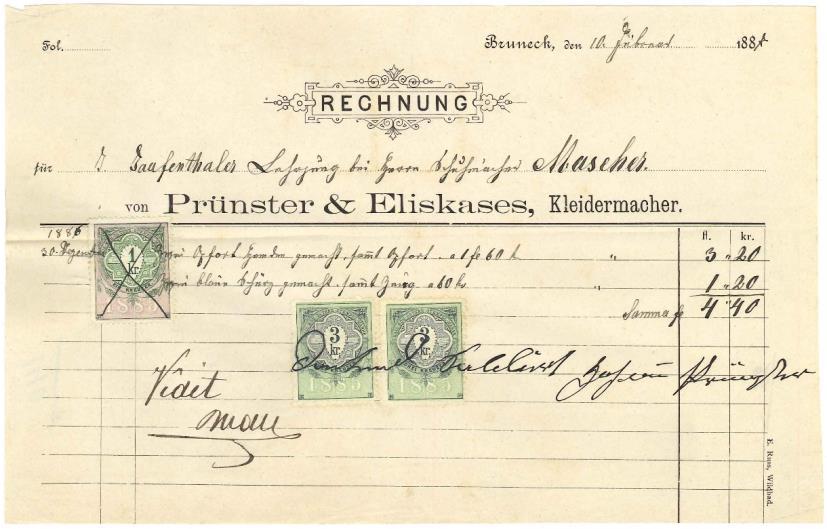 Fol. Bruneck, den 10. Februar 188
RECHNUNG
für J. Zaafenthaler Lehrjung bei Herrn Schuhmacher Mascher.
von Prünster & Eliskases, Kleidermacher.
fl. kr.
1886
30. Dezember gemacht, sammt a 1 fl 60 k " 3 " 20
blaue Schürz gemacht, sammt Zeug a 60 k " 1 " 20
Summa fl 4 " 40
1 kr.
1885
3 kr. 3 kr.
1885 1885
Dankend Saldiert Johann Prünster
Vidit
E. Russ, Wildbad.